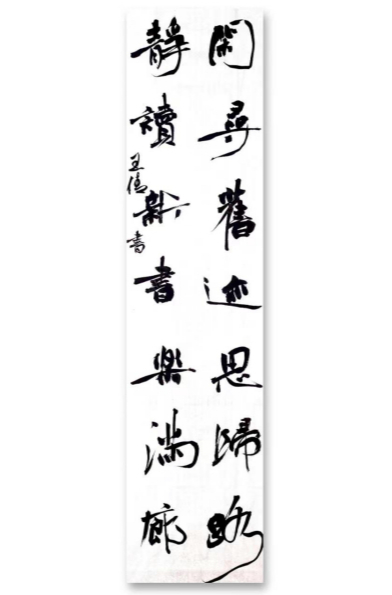 閑尋舊迹思歸路
靜讀新書樂満廊
王信書